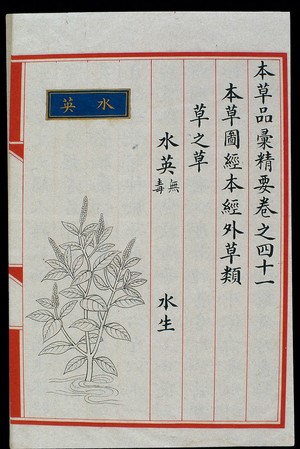 本草品彙精要卷之四十一
本草圖經本經外草類
草之草
水英 無毒 水生
水英